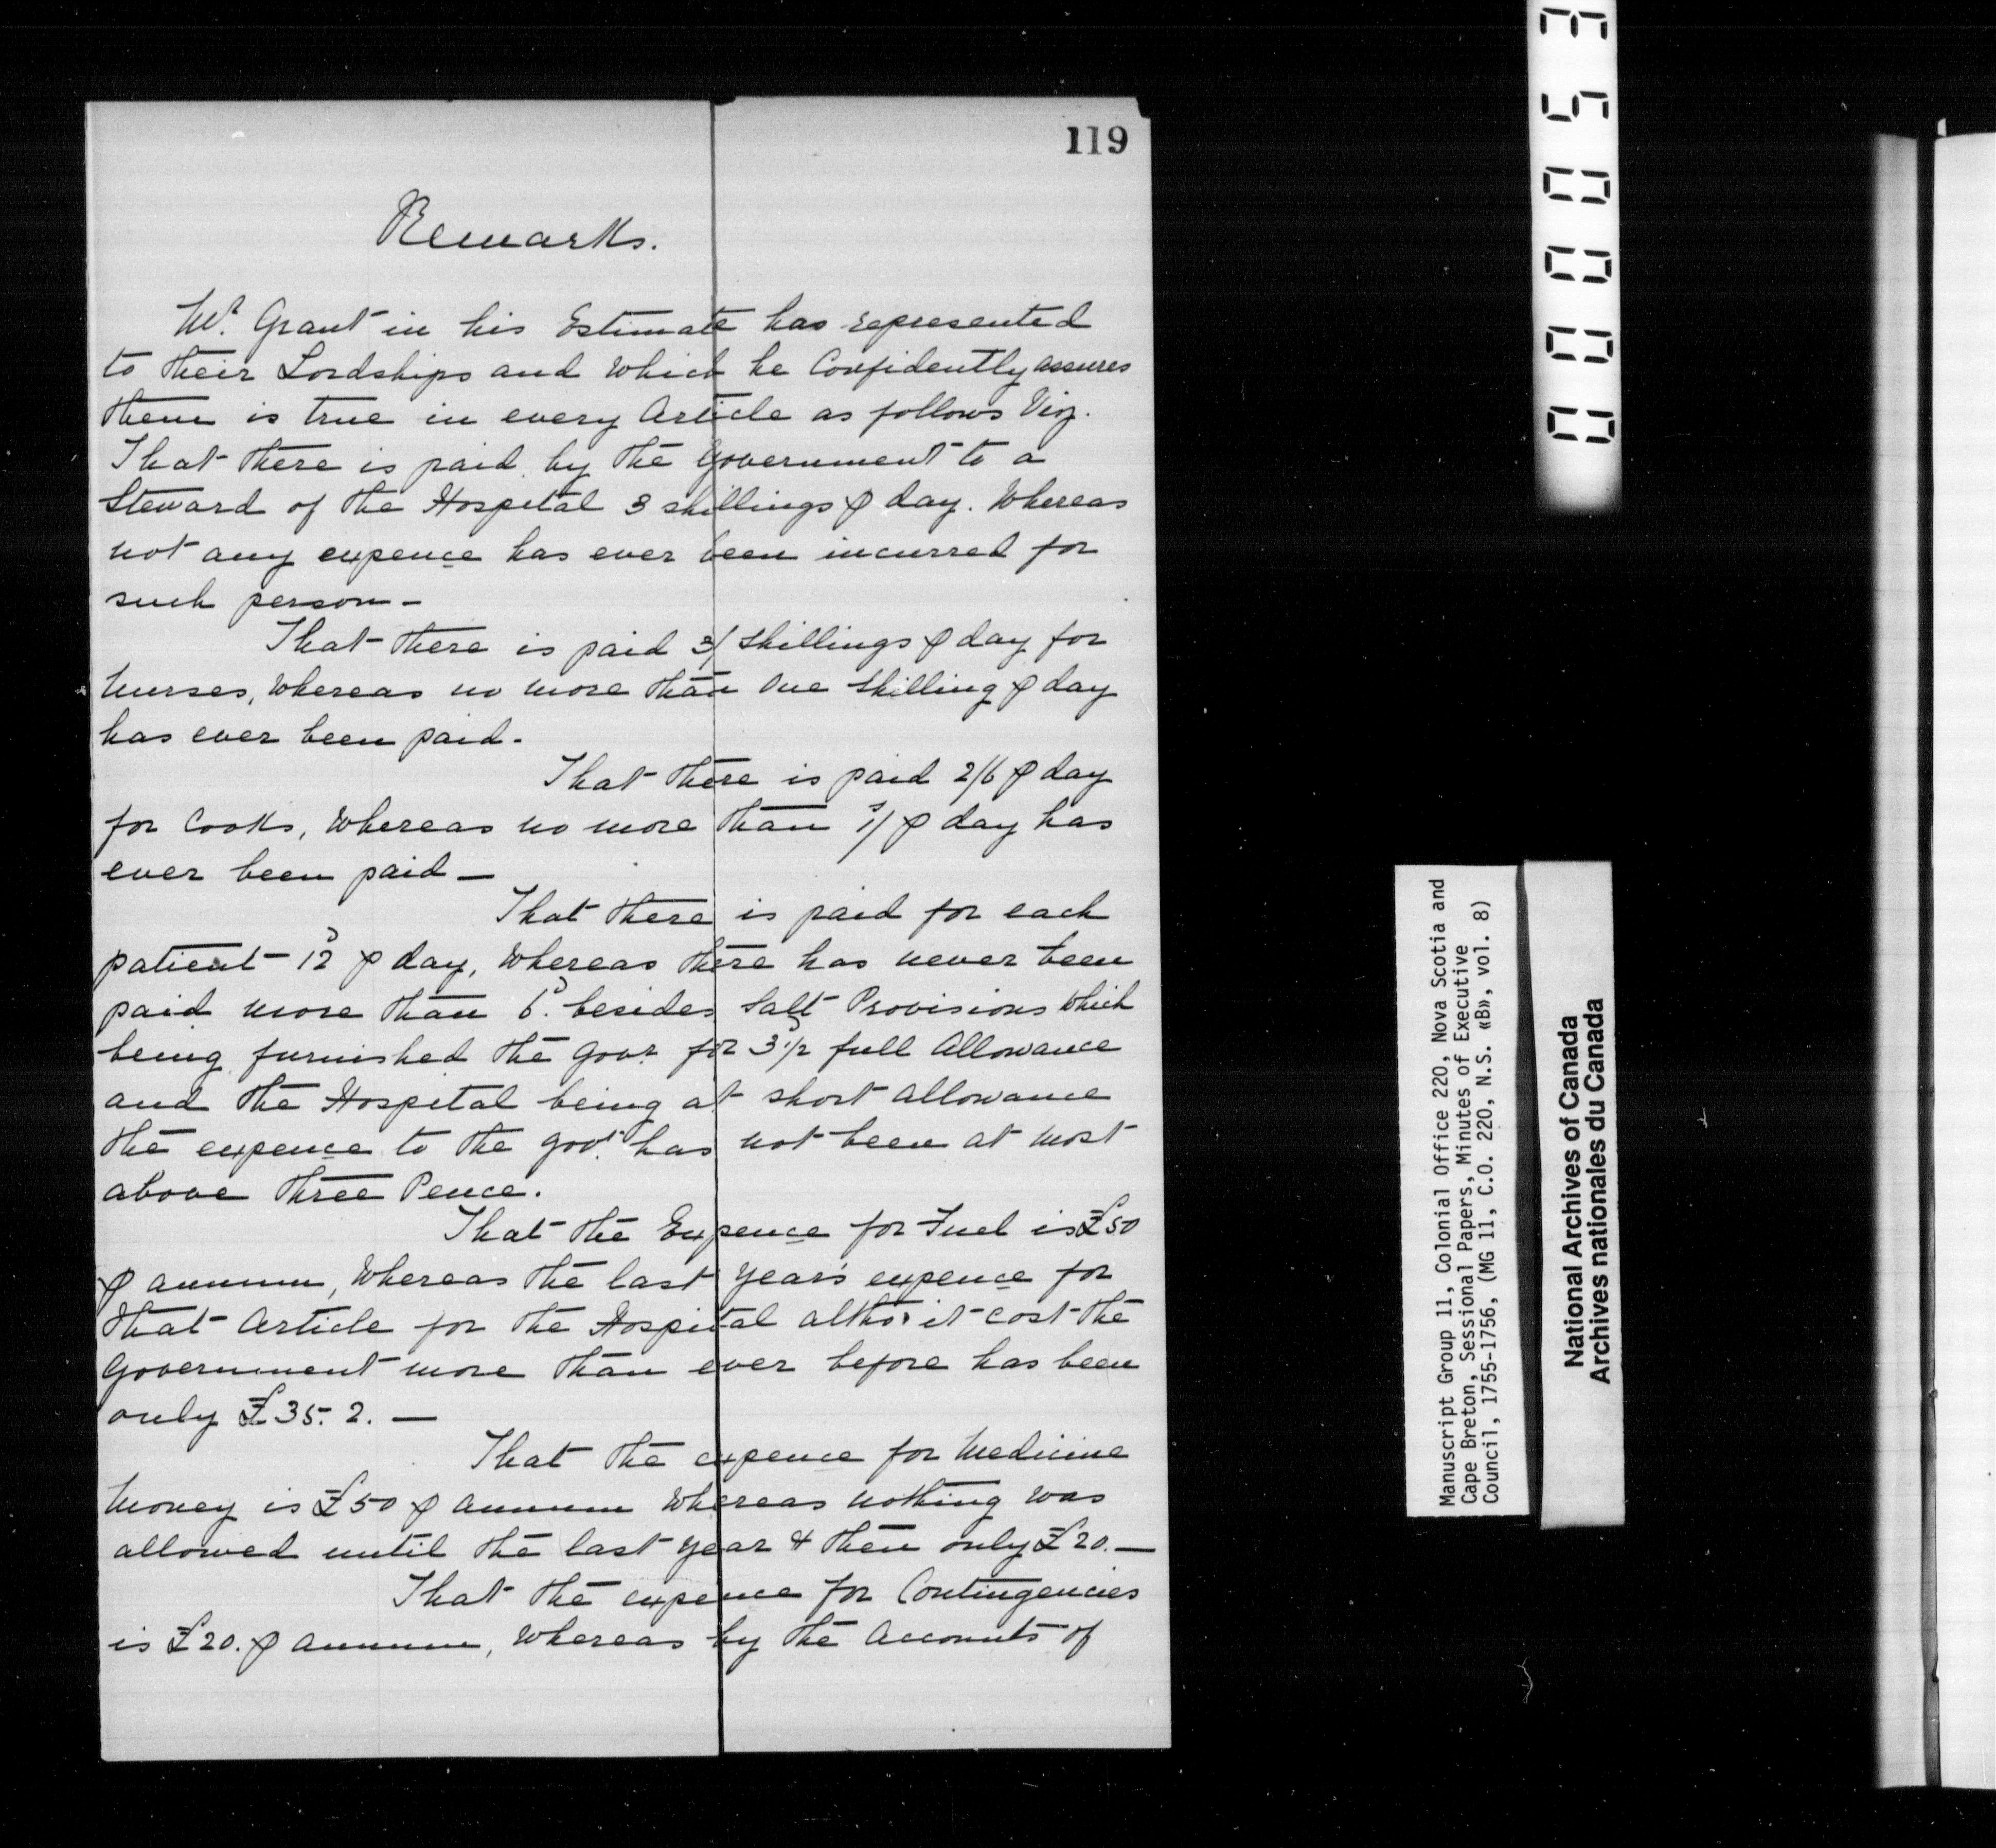 119
Remarks.
Mr. Grant in his Estimate has represented
to their Lordships and which he Confidently assures
them is true in every Article as follows Viz.
That there is paid by the Government to a
Steward of the Hospital 3 shillings ⅌ day. Whereas
not any expence has ever been incurred for
such person -
That there is paid 3/ shillings ⅌ day for
Nurses, whereas no more than One shilling ⅌ day
has ever been paid -
That there is paid 2/6 ⅌ day
for Cooks, whereas no more than 1/ ⅌ day has
ever been paid —
That there is paid for each
patient 12d ⅌ day, whereas there has never been
paid more than 6d. besides Salt Provisions which
being furnished the Govt. for 3d½ full Allowance
and the Hospital being at short allowance
the expence to the Govt. has not been at most
above three Pence.
That the Expence for Fuel is £50
⅌ annum, Whereas the last year's expence for
that Article for the Hospital altho' it cost the
Government more than ever before has been
only £35. 2. —
That the expence for Medicine
Money is £50 ⅌ annum whereas nothing was
allowed until the last year & then only £20. —
That the expence for Contingencies
is £20. ⅌ annum, whereas by the Accounts of
000053
Manuscript Group 11, Colonial Office 220, Nova Scotia and
Cape Breton, Sessional Papers, Minutes of Executive
Council, 1755-1756, (MG 11, C.O. 220, N.S. «B», vol. 8)
National Archives of Canada
Archives nationales du Canada